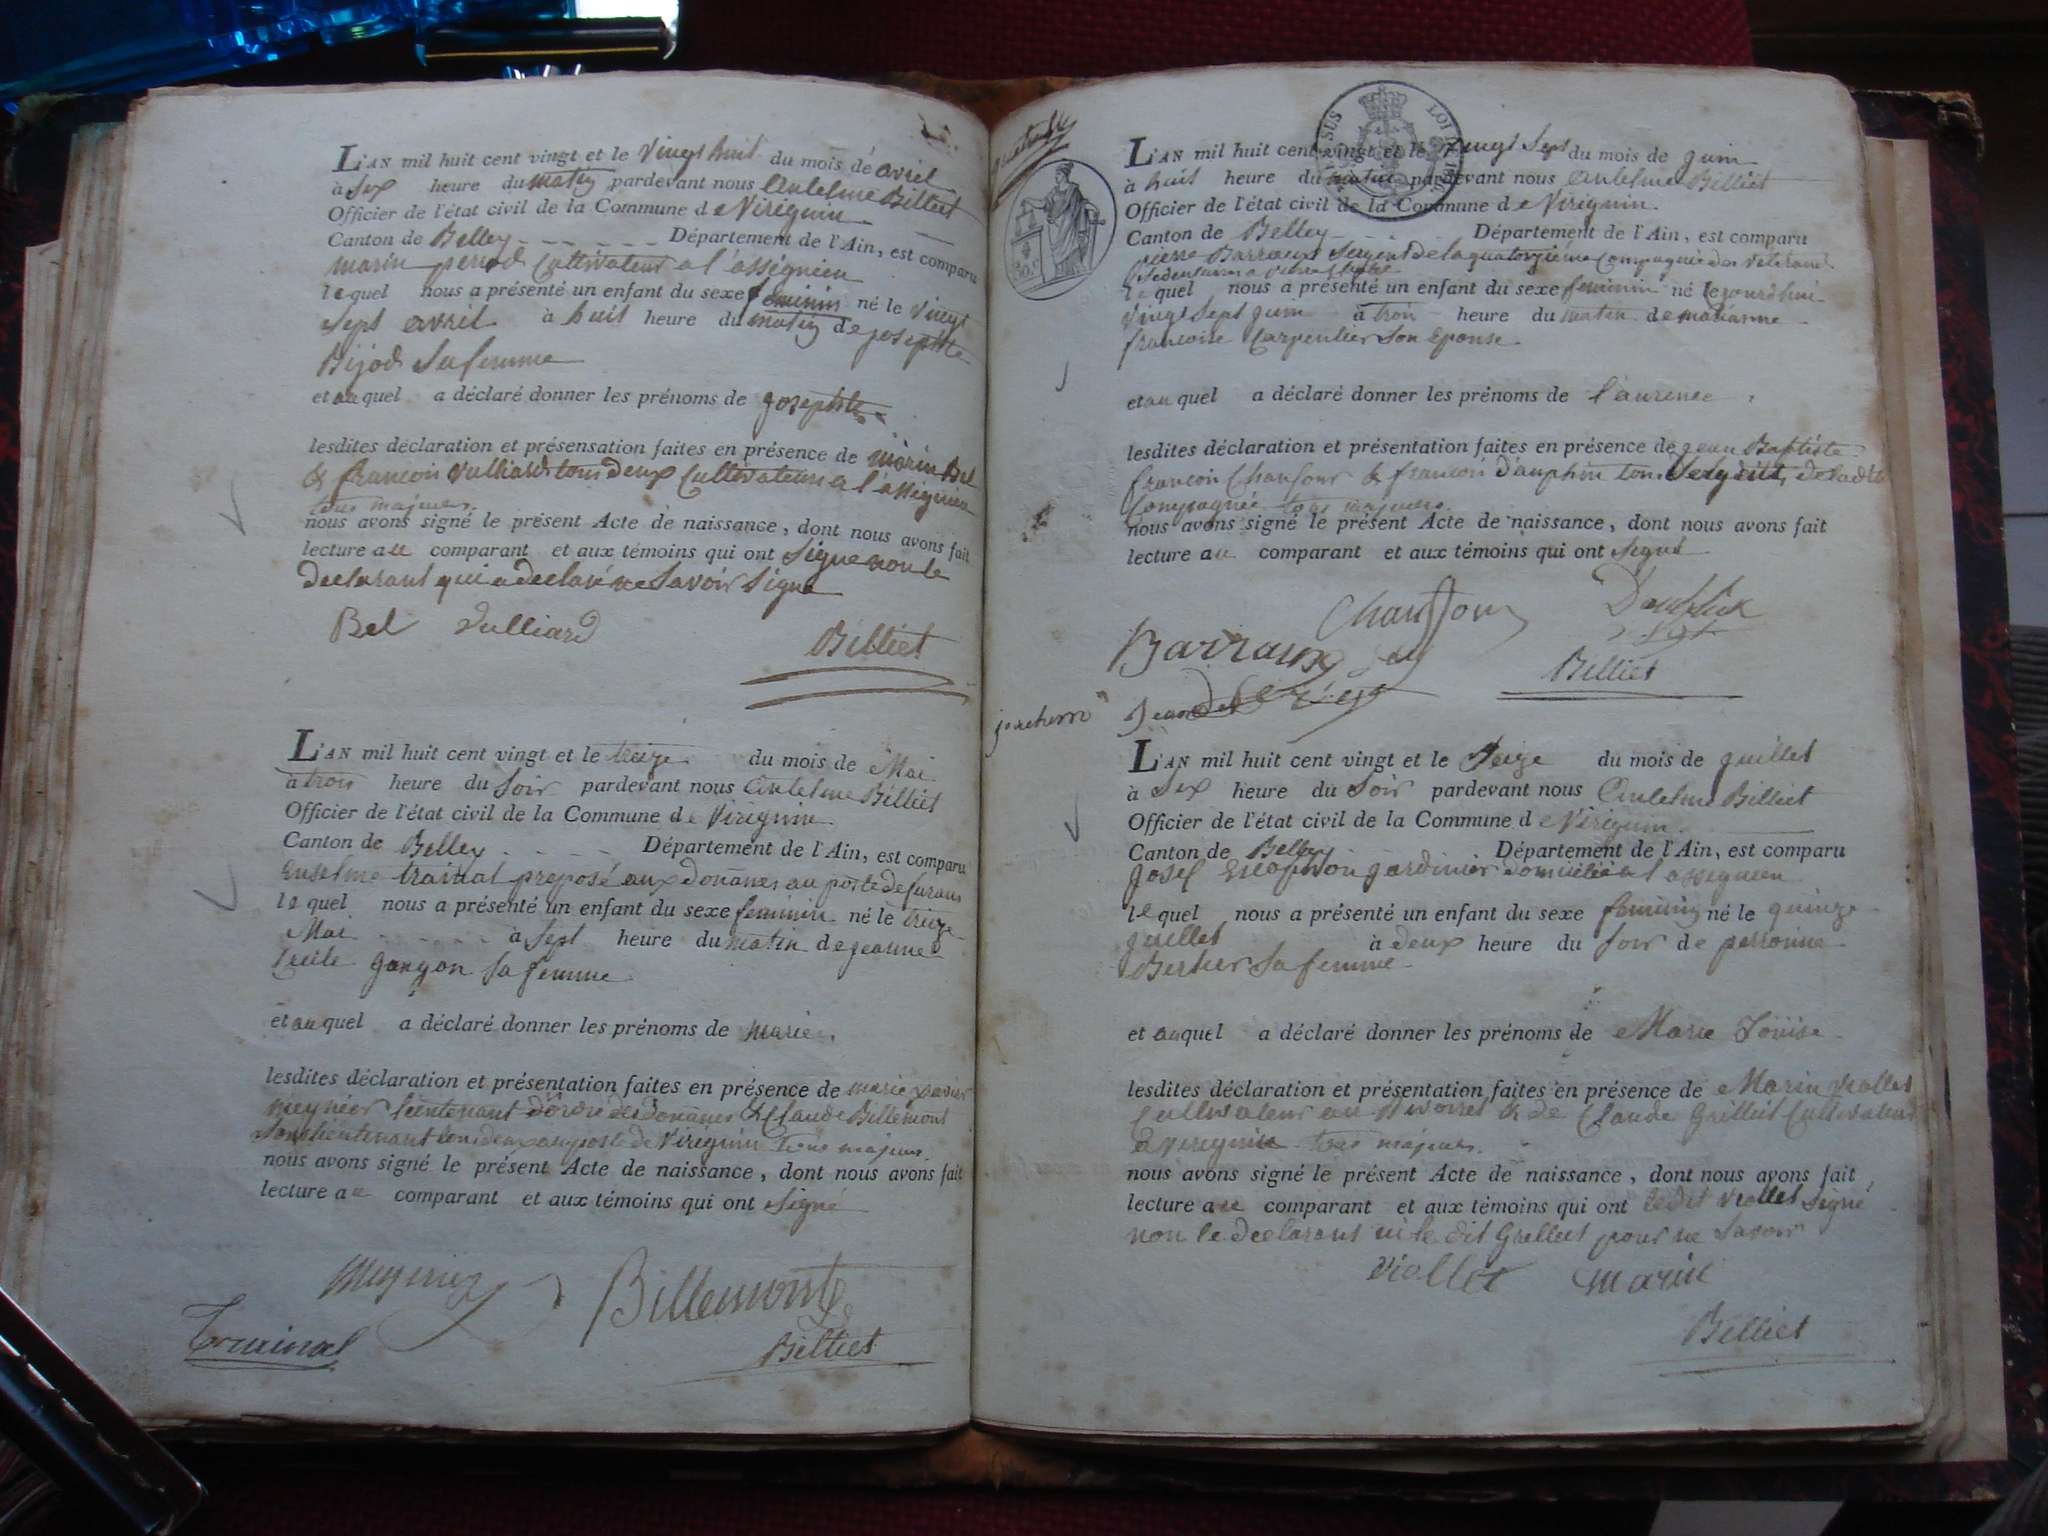 L'AN mil huit cent vingt et le Vingt huit du mois de avril
à Six heure du matin pardevant nous Antelme Billiet
Officier de l'état civil de la Commune de Virignin
Canton de Belley Département de l'Ain, est comparu
marin cultivateur a l'assignieu
lequel nous a présenté un enfant du sexe feminin né le Vingt
Sept avril à huit heure du matin de josephte
Bijod Sa femme
et auquel a déclaré donner les prénoms de josephte
lesdites déclaration et présensation faites en présence de marin Bel
& francois Vulliard tous deux Cultivateurs a l'assignieu
tous majeurs.
nous avons signé le présent Acte de naissance, dont nous avons fait
lecture au comparant et aux témoins qui ont Signé non le
declarant qui a declaré ne Savoir Signé
Bel Vulliard
Billiet
L'AN mil huit cent vingt et le treize du mois de Mai
à trois heure du Soir pardevant nous Antelme Billiet
Officier de l'état civil de la Commune de Virignin
Canton de Belley Département de l'Ain, est comparu
preposé aux douanes au poste de
lequel nous a présenté un enfant du sexe feminin né le treize
Mai à Sept heure du matin de jeanne
Sa femme
et auquel a déclaré donner les prénoms de marie
lesdites déclaration et présentation faites en présence de marie xavier
lieutenant d'ordre des douanes & Claude Billemont
Sous lieutenant tous deux au poste de Virignin tous majeurs.
nous avons signé le présent Acte de naissance, dont nous avons fait
lecture au comparant et aux témoins qui ont Signé
Billemont
Billiet
LOI
L'AN mil huit cent vingt et le vingt Sept du mois de juin
à huit heure du matin pardevant nous Antelme Billiet
Officier de l'état civil de la Commune de Virignin
Canton de Belley Département de l'Ain, est comparu
pierre Barraux Sergent de la quatorzième Compagnie des Veterans
Sedentaires a pierre Chatel
lequel nous a présenté un enfant du sexe feminin né le jourdhui
Vingt Sept juin à trois heure du matin de marianne
francoise Carpentier Son epouse
et auquel a déclaré donner les prénoms de l'aurence
lesdites déclaration et présentation faites en présence de jean Baptiste
francois Chaufour & francois dauphin tous Sergents de la dite
Compagnie tous majeurs.
nous avons signé le présent Acte de naissance, dont nous avons fait
lecture au comparant et aux témoins qui ont Signé
Chauffour
Barraux
Billiet
L'AN mil huit cent vingt et le Seize du mois de juillet
à Six heure du Soir pardevant nous Antelme Billiet
Officier de l'état civil de la Commune de Virignin
Canton de Belley Département de l'Ain, est comparu
josef jardinier domicilié a l'assignieu
lequel nous a présenté un enfant du sexe feminin né le quinze
juillet à deux heure du Soir de perronne
Bertier Sa femme
et auquel a déclaré donner les prénoms de Marie Louise
lesdites déclaration et présentation faites en présence de Marin Viollet
Cultivateur au & de Claude Grilliet Cultivateur
a Virignin tous majeurs.
nous avons signé le présent Acte de naissance, dont nous avons fait
lecture au comparant et aux témoins qui ont le dit Viollet Signé
non le declarant ni le dit Grilliet pour ne Savoir
Viollet marin
Billiet